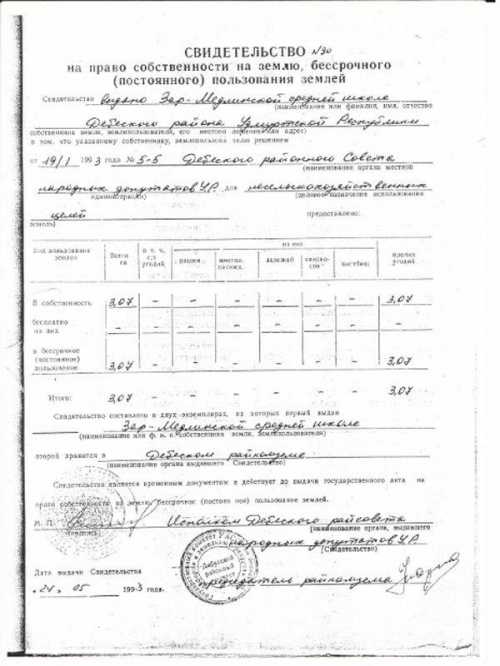 СВИДЕТЕЛЬСТВО №30
на право собственности на землю, бессрочного
(постоянного) пользования землей
Свидетельство выдано Зар-Медлинской средней школе
(наименование или фамилия, имя, отчество
Дебеского района Удмуртской Республики
собственника земли, землепользователя, его местно или адрес)
в том, что указанному собственнику, землепользователю решением
от 19/1 1993 года № 5-5 Дебеского районного Совета
(наименование органа местной
народных депутатов У.Р. для несельскохозяйственных
администрации) (целевое назначение использования
целей предоставлено:
земель)
Вид пользования земель Всего га в т. ч. с/х угодий из них пашни многол. насажд. залежей сеноко- сов пастбищ других угодий
В собственность 3,07 – – – – – – 3,07
бесплатно – – – – – – –
в бессрочное (постоянное) пользование 3,07 – – – – – – 3,07
Итого: 3,07 – – – – – – 3,07
Свидетельство составлено в двух экземплярах, из которых первый выдан
Зар-Медлинской средней школе
(наименование или ф. и. о. собственника земли, землепользователя)
второй хранится в Дебеском райкомземе
(наименование органа выдавшего Свидетельство)
Свидетельство является временным документом и действует до выдачи государственного акта на
право собственности на землю, бессрочное (постоянное) пользование землей.
М. П. Исполком Дебеского райсовета
(подпись) (наименование органа, выдавшего
народных депутатов У.Р.
Свидетельство)
Дата выдачи Свидетельства председатель райкомзема
"21" 05 1993 года.
Дебесский районный